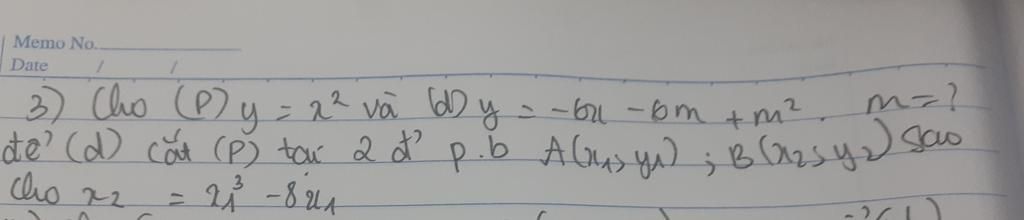 Memo No.
Date / /
3) Cho (P) y = x² và (d) y = -6x - 6m + m². m = ?
để (d) cắt (P) tại 2 đ' p.b A(x₁, y₁) ; B(x₂, y₂) sao
cho x₂ = x₁³ - 8x₁